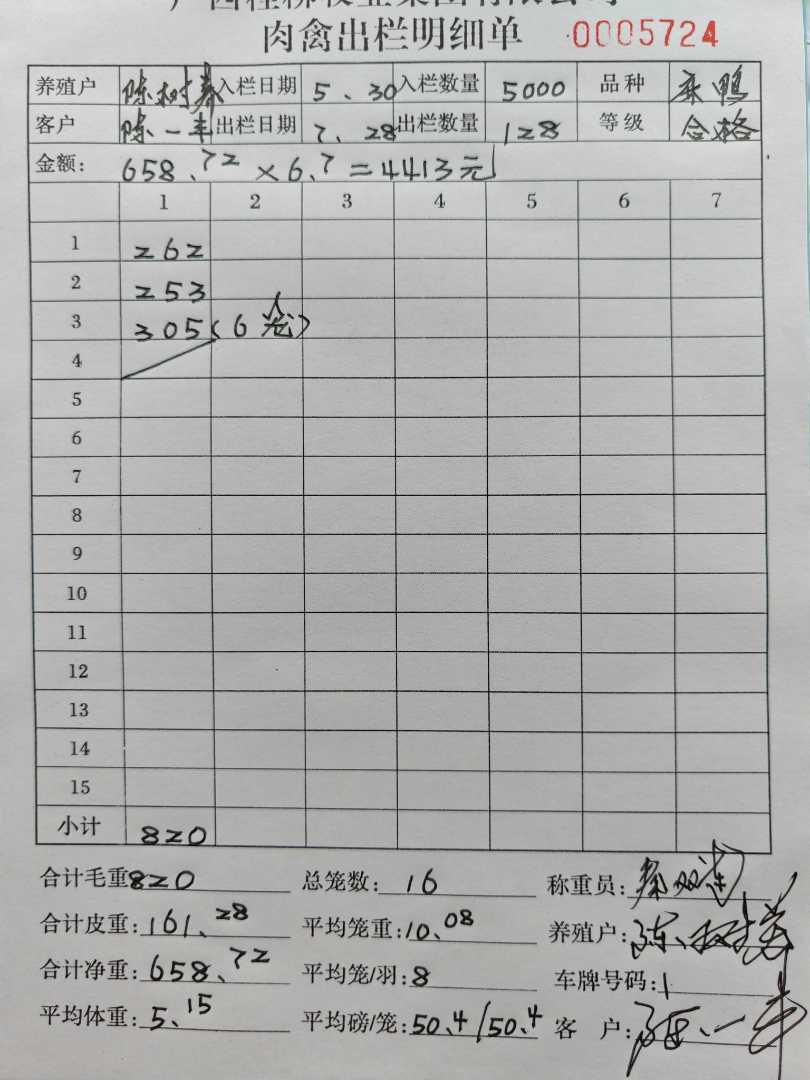 广西桂柳牧业集团有限公司
肉禽出栏明细单 0005724
养殖户 陈树春 入栏日期 5.30 入栏数量 5000 品种 麻鸭
客户 陈一丰 出栏日期 7.28 出栏数量 128 等级 合格
金额: 658.72 × 6.7 = 4413元
1 2 3 4 5 6 7
1 262
2 253
3 305(6笼)
4
5
6
7
8
9
10
11
12
13
14
15
小计 820
合计毛重 820 总笼数: 16 称重员:
合计皮重: 161.28 平均笼重: 10.08 养殖户: 陈树春
合计净重: 658.72 平均笼/羽: 8 车牌号码: 1
平均体重: 5.15 平均磅/笼: 50.4/50.4 客 户: 陈一丰